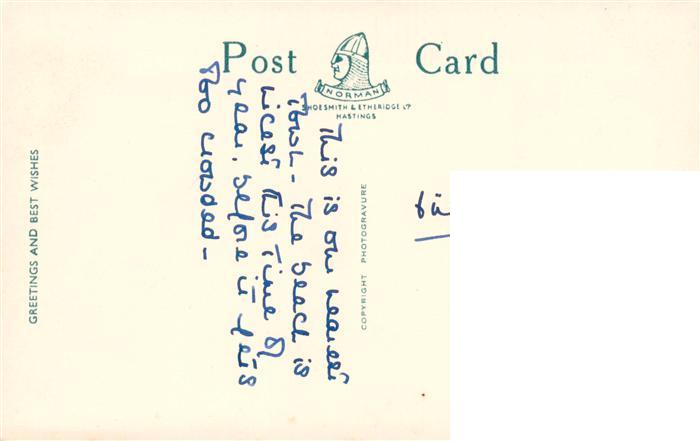 Post Card
NORMAN
SHOESMITH & ETHERIDGE LTD
HASTINGS
GREETINGS AND BEST WISHES
This is our nearest
Town - The beach is
nicest this time of
year, before it gets
too crowded -
COPYRIGHT PHOTOGRAVURE